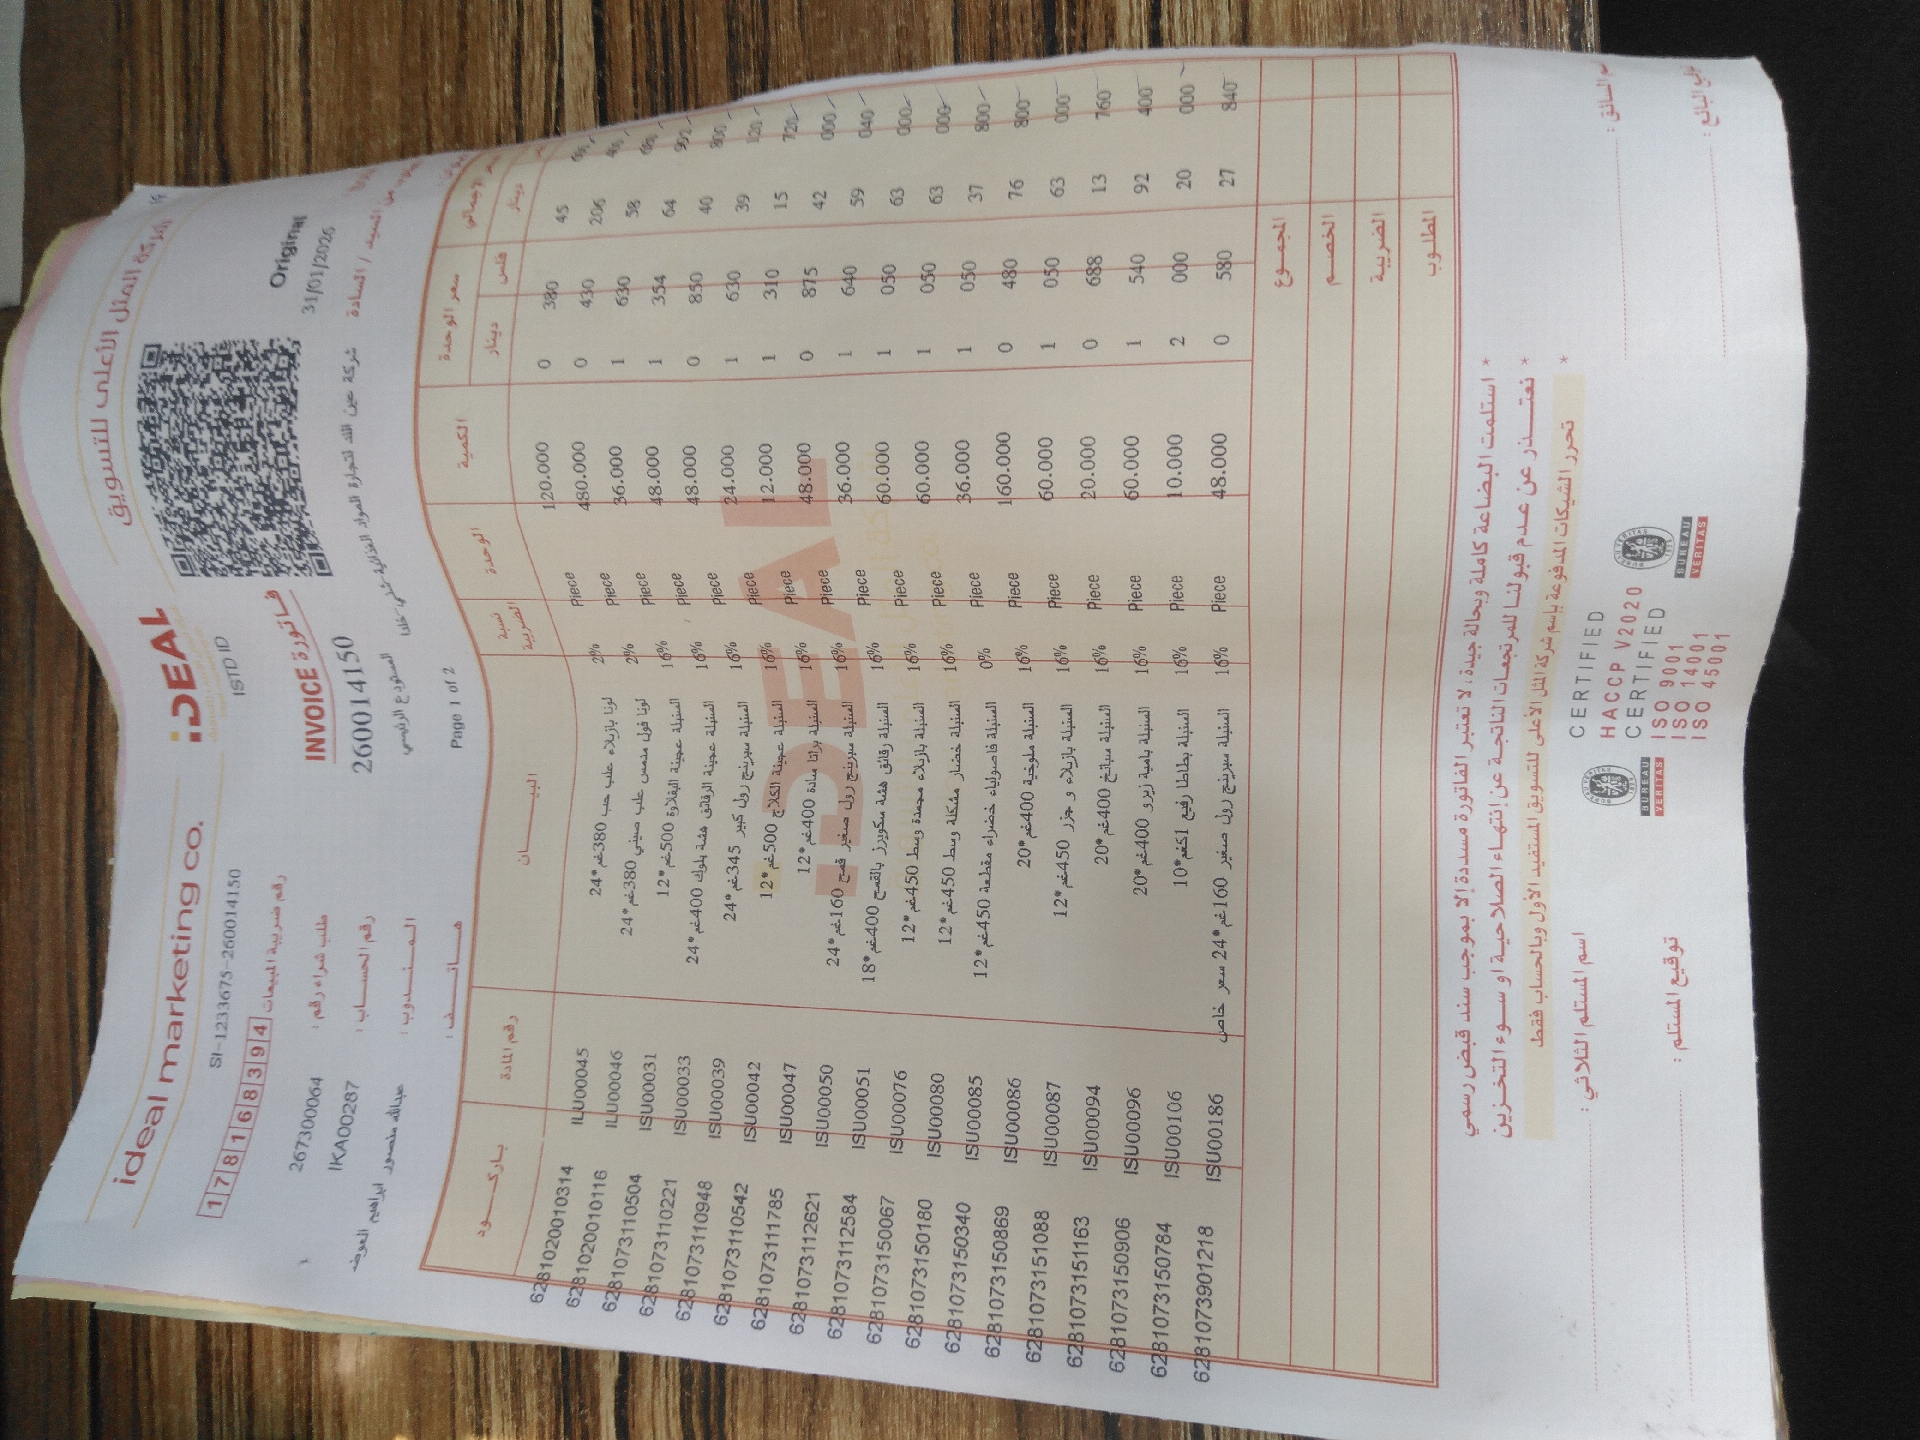 ideal marketing co.
iDEAL
شركة المثل الأعلى للتسويق
SI-1233675-260014150
ISTD ID
17816831394 رقم ضريبة المبيعات
فاتورة INVOICE
Original
طلب شراء رقم : 267300064
260014150
31/01/2026
رقم الحساب : IKA00287
المستودع الرئيسي
المندوب : عبدالله منصور ابراهيم العوضه
هاتف :
Page 1 of 2
باركود رقم المادة البيان نسبة الضريبة الوحدة الكمية سعر الوحدة
دينار فلس دينار
6281020010314 ILU00045 لونا بازيلاء علب حب 380غم*24 2% Piece 120.000 0 380 45
6281020010116 ILU00046 لونا فول مدمس علب صيني 380غم*24 2% Piece 480.000 0 430 206
6281073110504 ISU00031 السنبلة عجينة البقلاوة 500غم*12 16% Piece 36.000 1 630 58
6281073110221 ISU00033 السنبلة عجينة الرقائق هشة بلوك 400غم*24 16% Piece 48.000 1 354 64
6281073110948 ISU00039 السنبلة سبرينج رول كبير 345غم*24 16% Piece 48.000 0 850 40 800
6281073110542 ISU00042 السنبلة عجينة الكلاج 500غم*12 16% Piece 24.000 1 630 39 120
6281073111785 ISU00047 السنبلة براتا سادة 400غم*12 16% Piece 12.000 1 310 15 720
6281073112621 ISU00050 السنبلة سبرينج رول صغير قمح 160غم*24 16% Piece 48.000 0 875 42 000
6281073112584 ISU00051 السنبلة رقائق هشة سكويرز بالقمح 400غم*18 16% Piece 36.000 1 640 59 040
6281073150067 ISU00076 السنبلة بازيلاء مجمدة وسط 450غم*12 16% Piece 60.000 1 050 63 000
6281073150180 ISU00080 السنبلة خضار مشكلة وسط 450غم*12 16% Piece 60.000 1 050 63 000
6281073150340 ISU00085 السنبلة فاصولياء خضراء مقطعة 450غم*12 0% Piece 36.000 1 050 37 800
6281073150869 ISU00086 السنبلة ملوخية 400غم*20 16% Piece 160.000 0 480 76 800
6281073151088 ISU00087 السنبلة بازيلاء و جزر 450غم*12 16% Piece 60.000 1 050 63 000
6281073151163 ISU00094 السنبلة سبانخ 400غم*20 16% Piece 20.000 0 688 13 760
6281073150906 ISU00096 السنبلة بامية زيرو 400غم*20 16% Piece 60.000 1 540 92 400
6281073150784 ISU00106 السنبلة بطاطا رفيع 1كغم*10 16% Piece 10.000 2 000 20 000
6281073901218 ISU00186 السنبلة سبرينج رول صغير 160غم*24 سعر خاص 16% Piece 48.000 0 580 27 840
المجموع
الخصم
الضريبة
المطلوب
* استلمت البضاعة كاملة وبحالة جيدة، لا تعتبر الفاتورة مسددة إلا بموجب سند قبض رسمي
* نعتذر عن عدم قبولنا للمرتجعات الناتجة عن إنتهاء الصلاحية او سوء التخزين
* تحرر الشيكات المدفوعة باسم شركة المثل الأعلى للتسويق المستفيد الأول وبالحساب فقط
اسم المستلم الثلاثي :
توقيع المستلم :
CERTIFIED
HACCP V/2020
CERTIFIED
ISO 9001
ISO 14001
ISO 45001
BUREAU VERITAS
BUREAU VERITAS